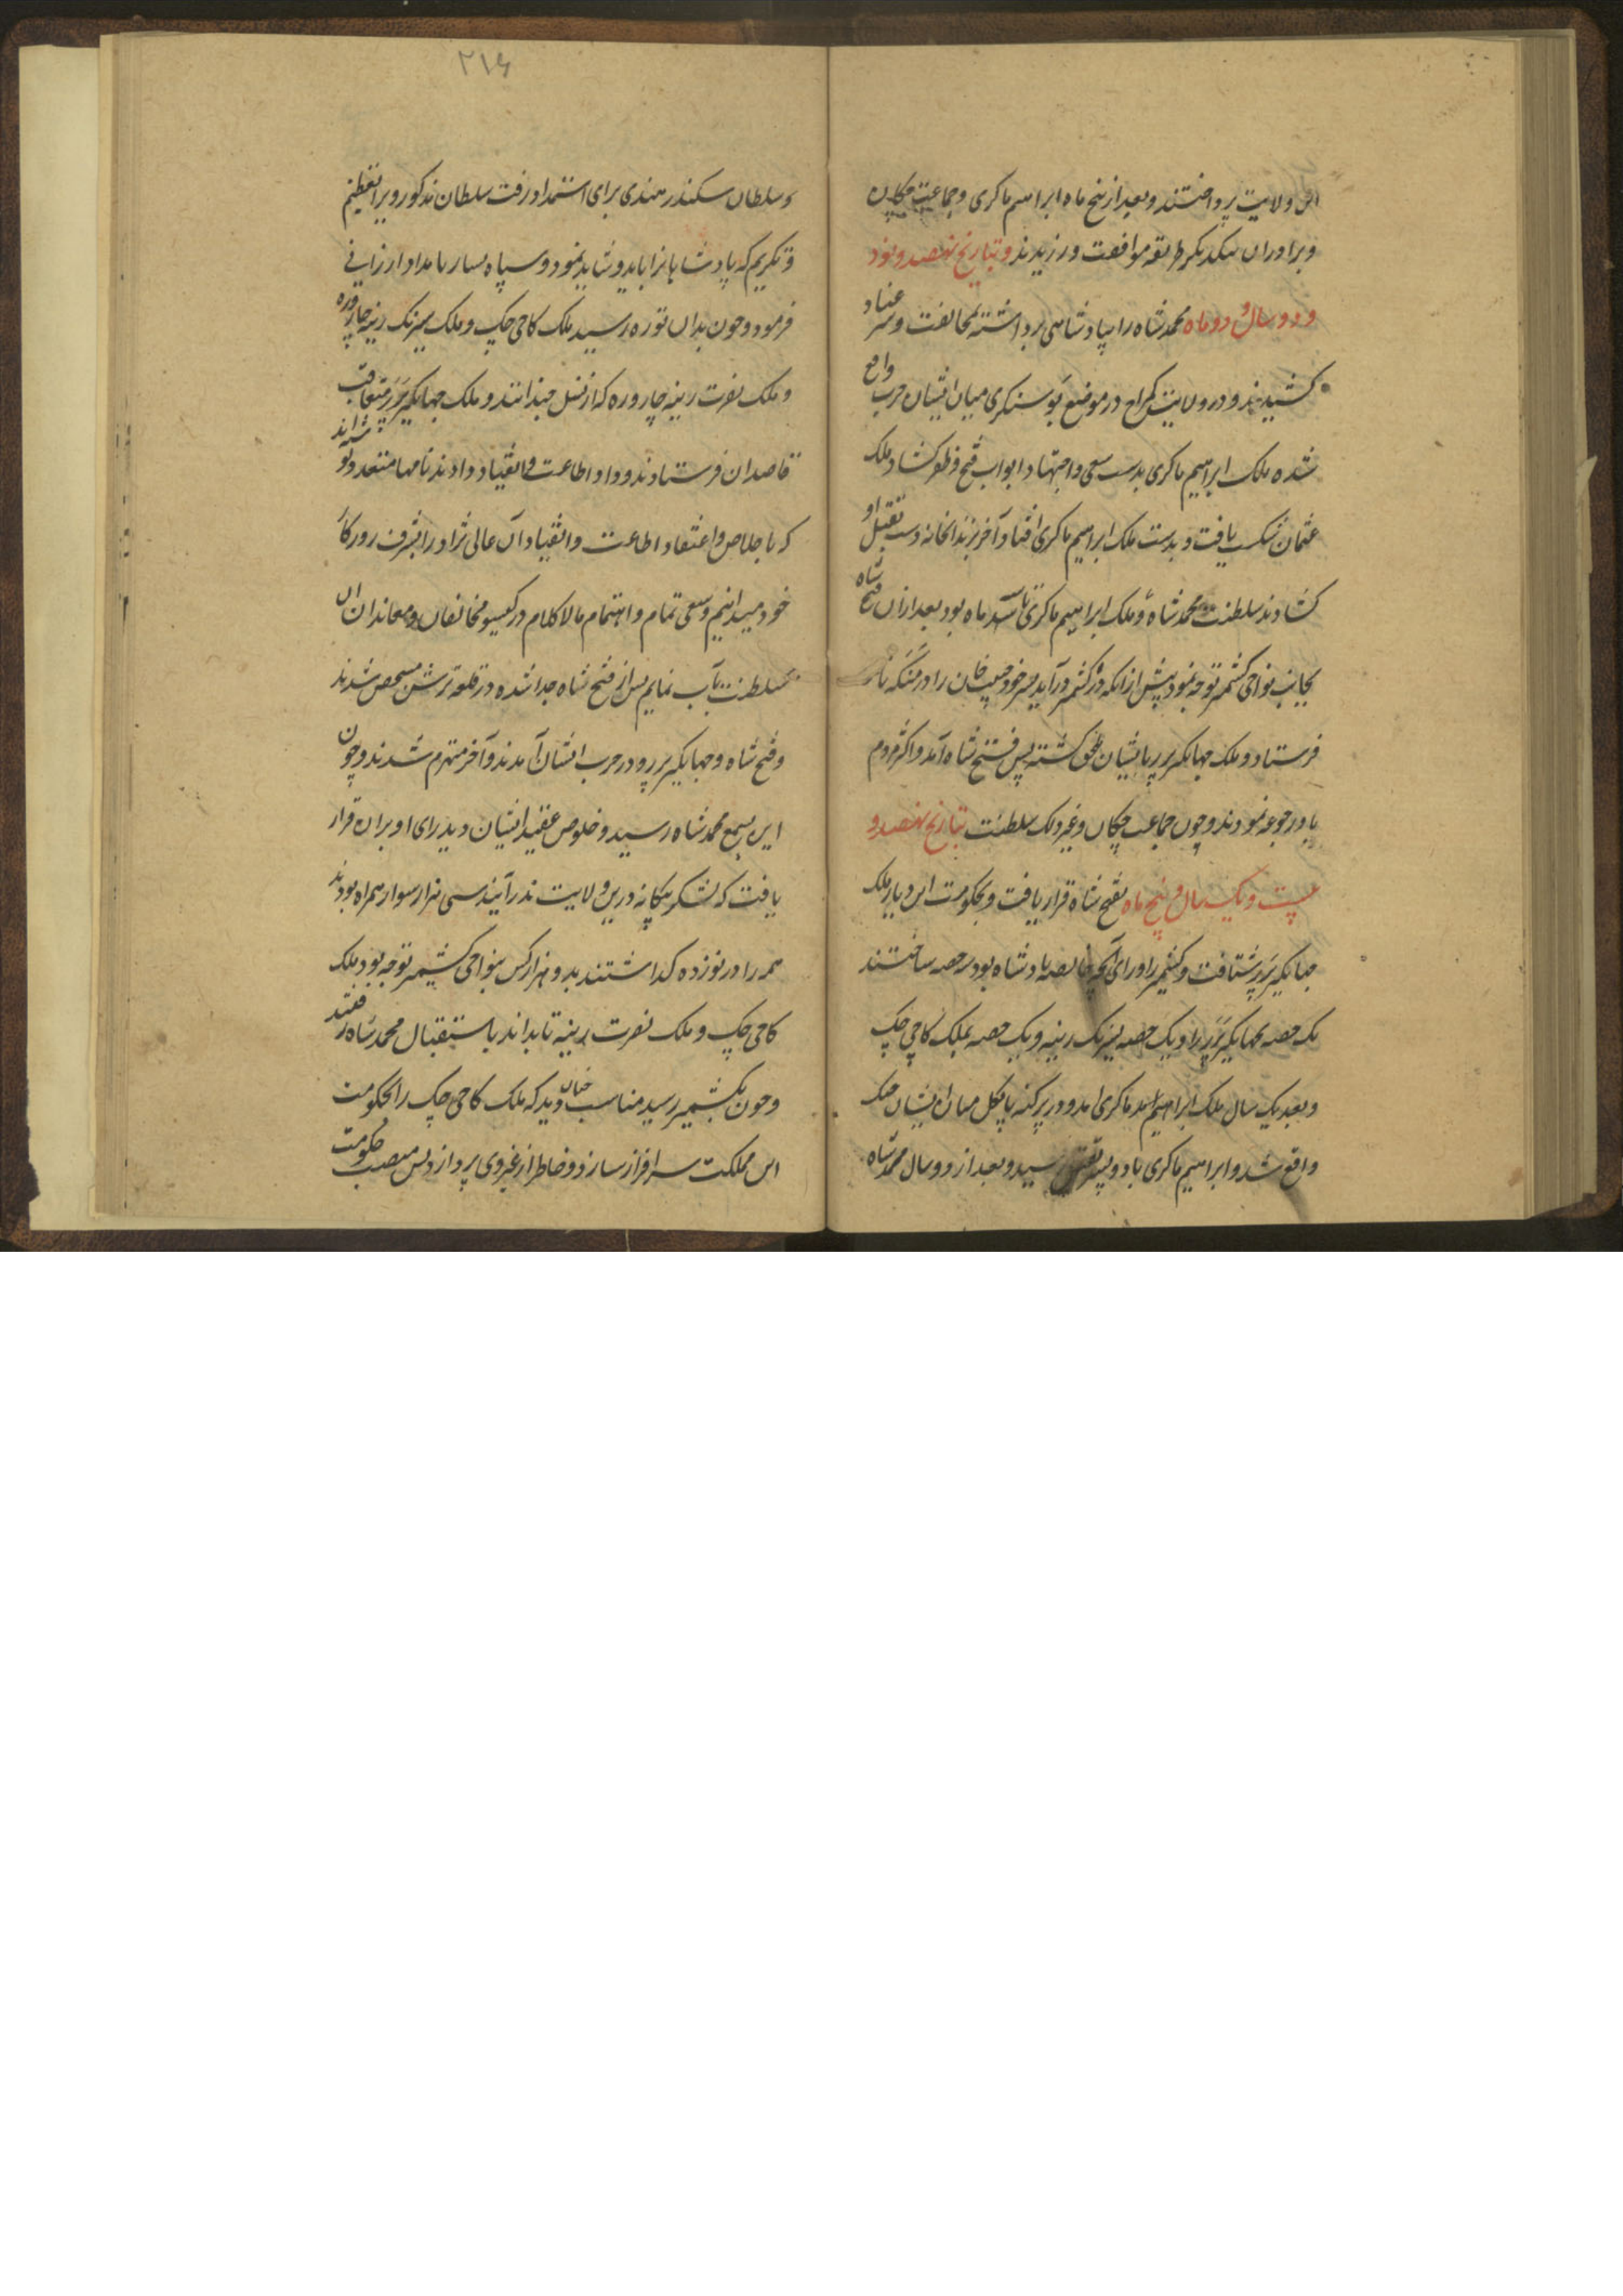 این ولایت پرداختند و بعد از پنج ماه ابراهیم ماکری و جماعت چکان
و برادران یکدیگر طریقه موافقت ورزیدند و بتاریخ نهصد و نود
و دو سال و دو ماه محمد شاه را بپادشاهی برداشته بمخالفت و سر عناد
کشیدند و در ولایت کمراج در موضع پوسنکری میان ایشان حرب واقع
شده ملک ابراهیم ماکری بدست سعی و اجتهاد ابواب فتح و ظفر کشاد و ملک
عثمان شکست یافت و بدست ملک ابراهیم ماکری افتاد و آخر بزندانخانه دست بقتل او
کشادند سلطنت محمد شاه و ملک ابراهیم ماکری تا ماه بود بعد ازان فتح شاه
بجانب نواحی کشمیر توجه نمود پیش از آنکه در کشمیر درآید پسر خود حبیب خان را در
فرستاد و ملک جهانکیر پدر بایشان ملحق کشته پس فتح شاه آمد و اکثر مردم
باو رجوعه نمودند و چون جماعت چکان و غیر ذلک سلطنت بتاریخ نهصد و
بیست و یک سال و پنج ماه بفتح شاه قرار یافت و بحکومت این دیار ملک
جهانکیر پدر شتافت و کشمیر را ورای آنچه خالصه پادشاه بود سه حصه ساختند
یک حصه بجهانکیر پدر را و یک حصه بسیرنک رینه و یک حصه بملک کاجی چک
و بعد یک سال ملک ابراهیم ماکری آمد و در پرکنه بانکل میان ایشان جنک
واقع شد و ابراهیم ماکری با دو پسر بقتل رسید و بعد از دو سال محمد شاه
۲۱۶
و سلطان سکندر هندی برای استمداد رفت سلطان مذکور ویرا تعظیم
و تکریم که پادشاهانرا باید و شاید نمود و سپاه بسیار بامداد ارزانی
فرمود و چون بدان نوره رسید ملک کاجی چک و ملک سیرنک رینه چاروره
و ملک نصرت رینه چاروره که از نسل چندانند و ملک جهانکیر پدر متعاقب
قاصدان فرستادند و داد اطاعت و انقیاد دادند نامها متعدد نوشته‌اند
که باخلاص و اعتقاد اطاعت و انقیاد آن عالی نژاد را شرف روزکار
خود میدانیم و سعی تمام و اهتمام مالاکلام در مخالفان و معاندان آن
سلطنت مآب نمایم پس از فتح شاه جدا شده در قلعه ترشن متحصن شدند
و فتح شاه و جهانکیر پدر و در حرب ایشان آمدند و آخر منهزم شدند و چون
این بسمع محمد شاه رسید و خلوص عقیده ایشان دید رای او بران قرار
یافت که لشکر بیکانه درین ولایت ندرآیند سی هزار سوار همراه بودند
همه را در نوزده کذاشتند بدو هزار کس بنواحی کشیمر توجه نمود ملک
کاجی چک و ملک نصرت رینه تا بداند باستقبال محمد شاه رفتند
و چون بکشمیر رسید مناسب چنان دید که ملک کاجی چک را بحکومت
این مملکت سرافراز سازد و خاطر از غیر وی پردازد پس منصب حکومت